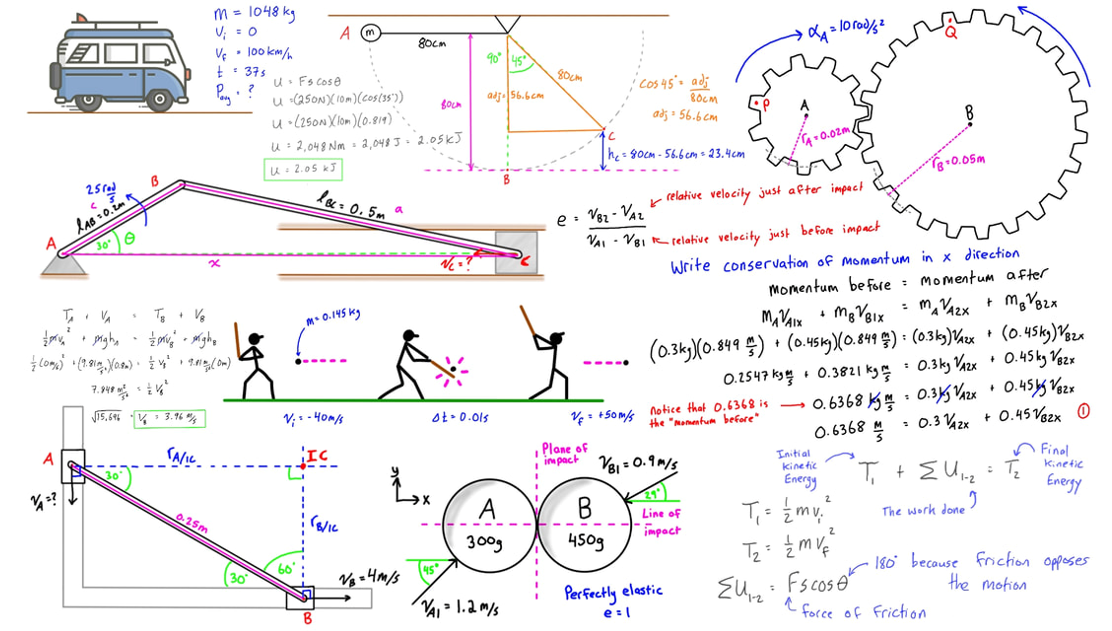 m = 1048 kg
Vi = 0
Vf = 100 km/h
t = 37s
Pavg = ?
U = Fscosθ
U = (250N)(10m)(cos(35°))
U = (250N)(10m)(0.819)
U = 2,048 Nm = 2,048 J = 2.05 kJ
U = 2.05 kJ
A
m
80cm
90°
45°
80cm
80cm
adj = 56.6cm
C
B
hc = 80cm - 56.6cm = 23.4cm
cos45° = adj/80cm
adj = 56.6cm
αA = 10 rad/s²
P
A
rA = 0.02m
Q
B
rB = 0.05m
25 rad/s
B
c
lAB = 0.2m
A
30°
θ
lBC = 0.5m
a
x
Vc = ?
C
e = (VB2 - VA2)/(VA1 - VB1)
relative velocity just after impact
relative velocity just before impact
Write conservation of momentum in x direction
momentum before = momentum after
mAVA1x + mBVB1x = mAVA2x + mBVB2x
(0.3kg)(0.849 m/s) + (0.45kg)(0.849 m/s) = (0.3kg)VA2x + (0.45kg)VB2x
0.2547 kg m/s + 0.3821 kg m/s = 0.3kg VA2x + 0.45kg VB2x
0.6368 kg m/s = 0.3kg VA2x + 0.45kg VB2x
notice that 0.6368 is
the "momentum before"
0.6368 m/s = 0.3VA2x + 0.45VB2x
1
TA + VA = TB + VB
½mvA² + mghA = ½mvB² + mghB
½(0m/s)² + (9.81m/s²)(0.8m) = ½VB² + 9.81m/s²(0m)
7.848 m²/s² = ½VB²
√15.696 = VB = 3.96 m/s
m = 0.145kg
Vi = -40m/s
Δt = 0.01s
Vf = +50m/s
A
rA/IC
IC
30°
VA = ?
0.25m
rB/IC
60°
30°
B
VB = 4m/s
y
x
Plane of
impact
VB1 = 0.9m/s
29°
Line of
impact
A
300g
B
450g
45°
VA1 = 1.2m/s
Perfectly elastic
e = 1
Initial
Kinetic
Energy
T1 + ΣU1-2 = T2
Final
Kinetic
Energy
The work done
T1 = ½mvi²
T2 = ½mvf²
ΣU1-2 = Fscosθ
180° because friction opposes
the motion
force of friction